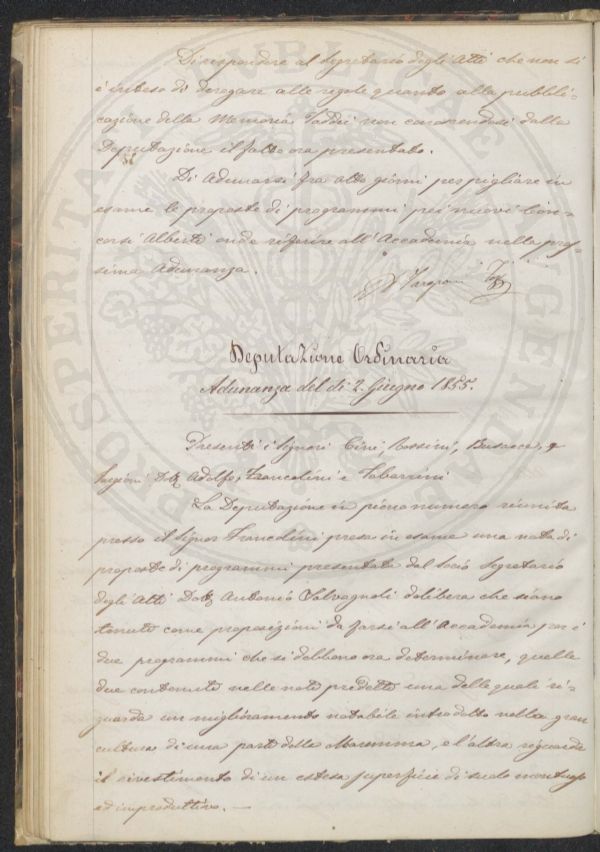 Di rispondere al Segretario degli Atti che non si
è inteso di derogare alle regole quanto alla pubbli=
cazione della Memoria Taddei non conoscendosi dalla
Deputazione il fatto ora presentato.
Di Adunarsi fra otto giorni per pigliare in
esame le proposte di programmi pei nuovi Con=
corsi Alberti onde riferire all'Accademia nella pros=
sima Adunanza.
Targioni Tozz
Deputazione Ordinaria
Adunanza del dì 2 Giugno 1855.
Presenti i Signori Cini, Rossini, Busacca,
Targioni Dott. Adolfo, Francolini e Tabarrini
La Deputazione in pieno numero riunita
presso il Signor Francolini presa in esame una nota di
proposte di programmi presentate dal socio Segretario
degli Atti Dott. Antonio Salvagnoli delibera che siano
tenute come proposizioni da farsi all'Accademia per i
due programmi che si debbono ora determinare, quelle
due contenute nelle note predette una delle quali ri=
guarda un miglioramento notabile introdotto nella gran
cultura di una parte della Maremma, e l'altra riguarda
il rivestimento di un estesa superficie di suolo montuoso
ed improduttivo. —
PROSPERITATI PVBLICAE AVGENDAE